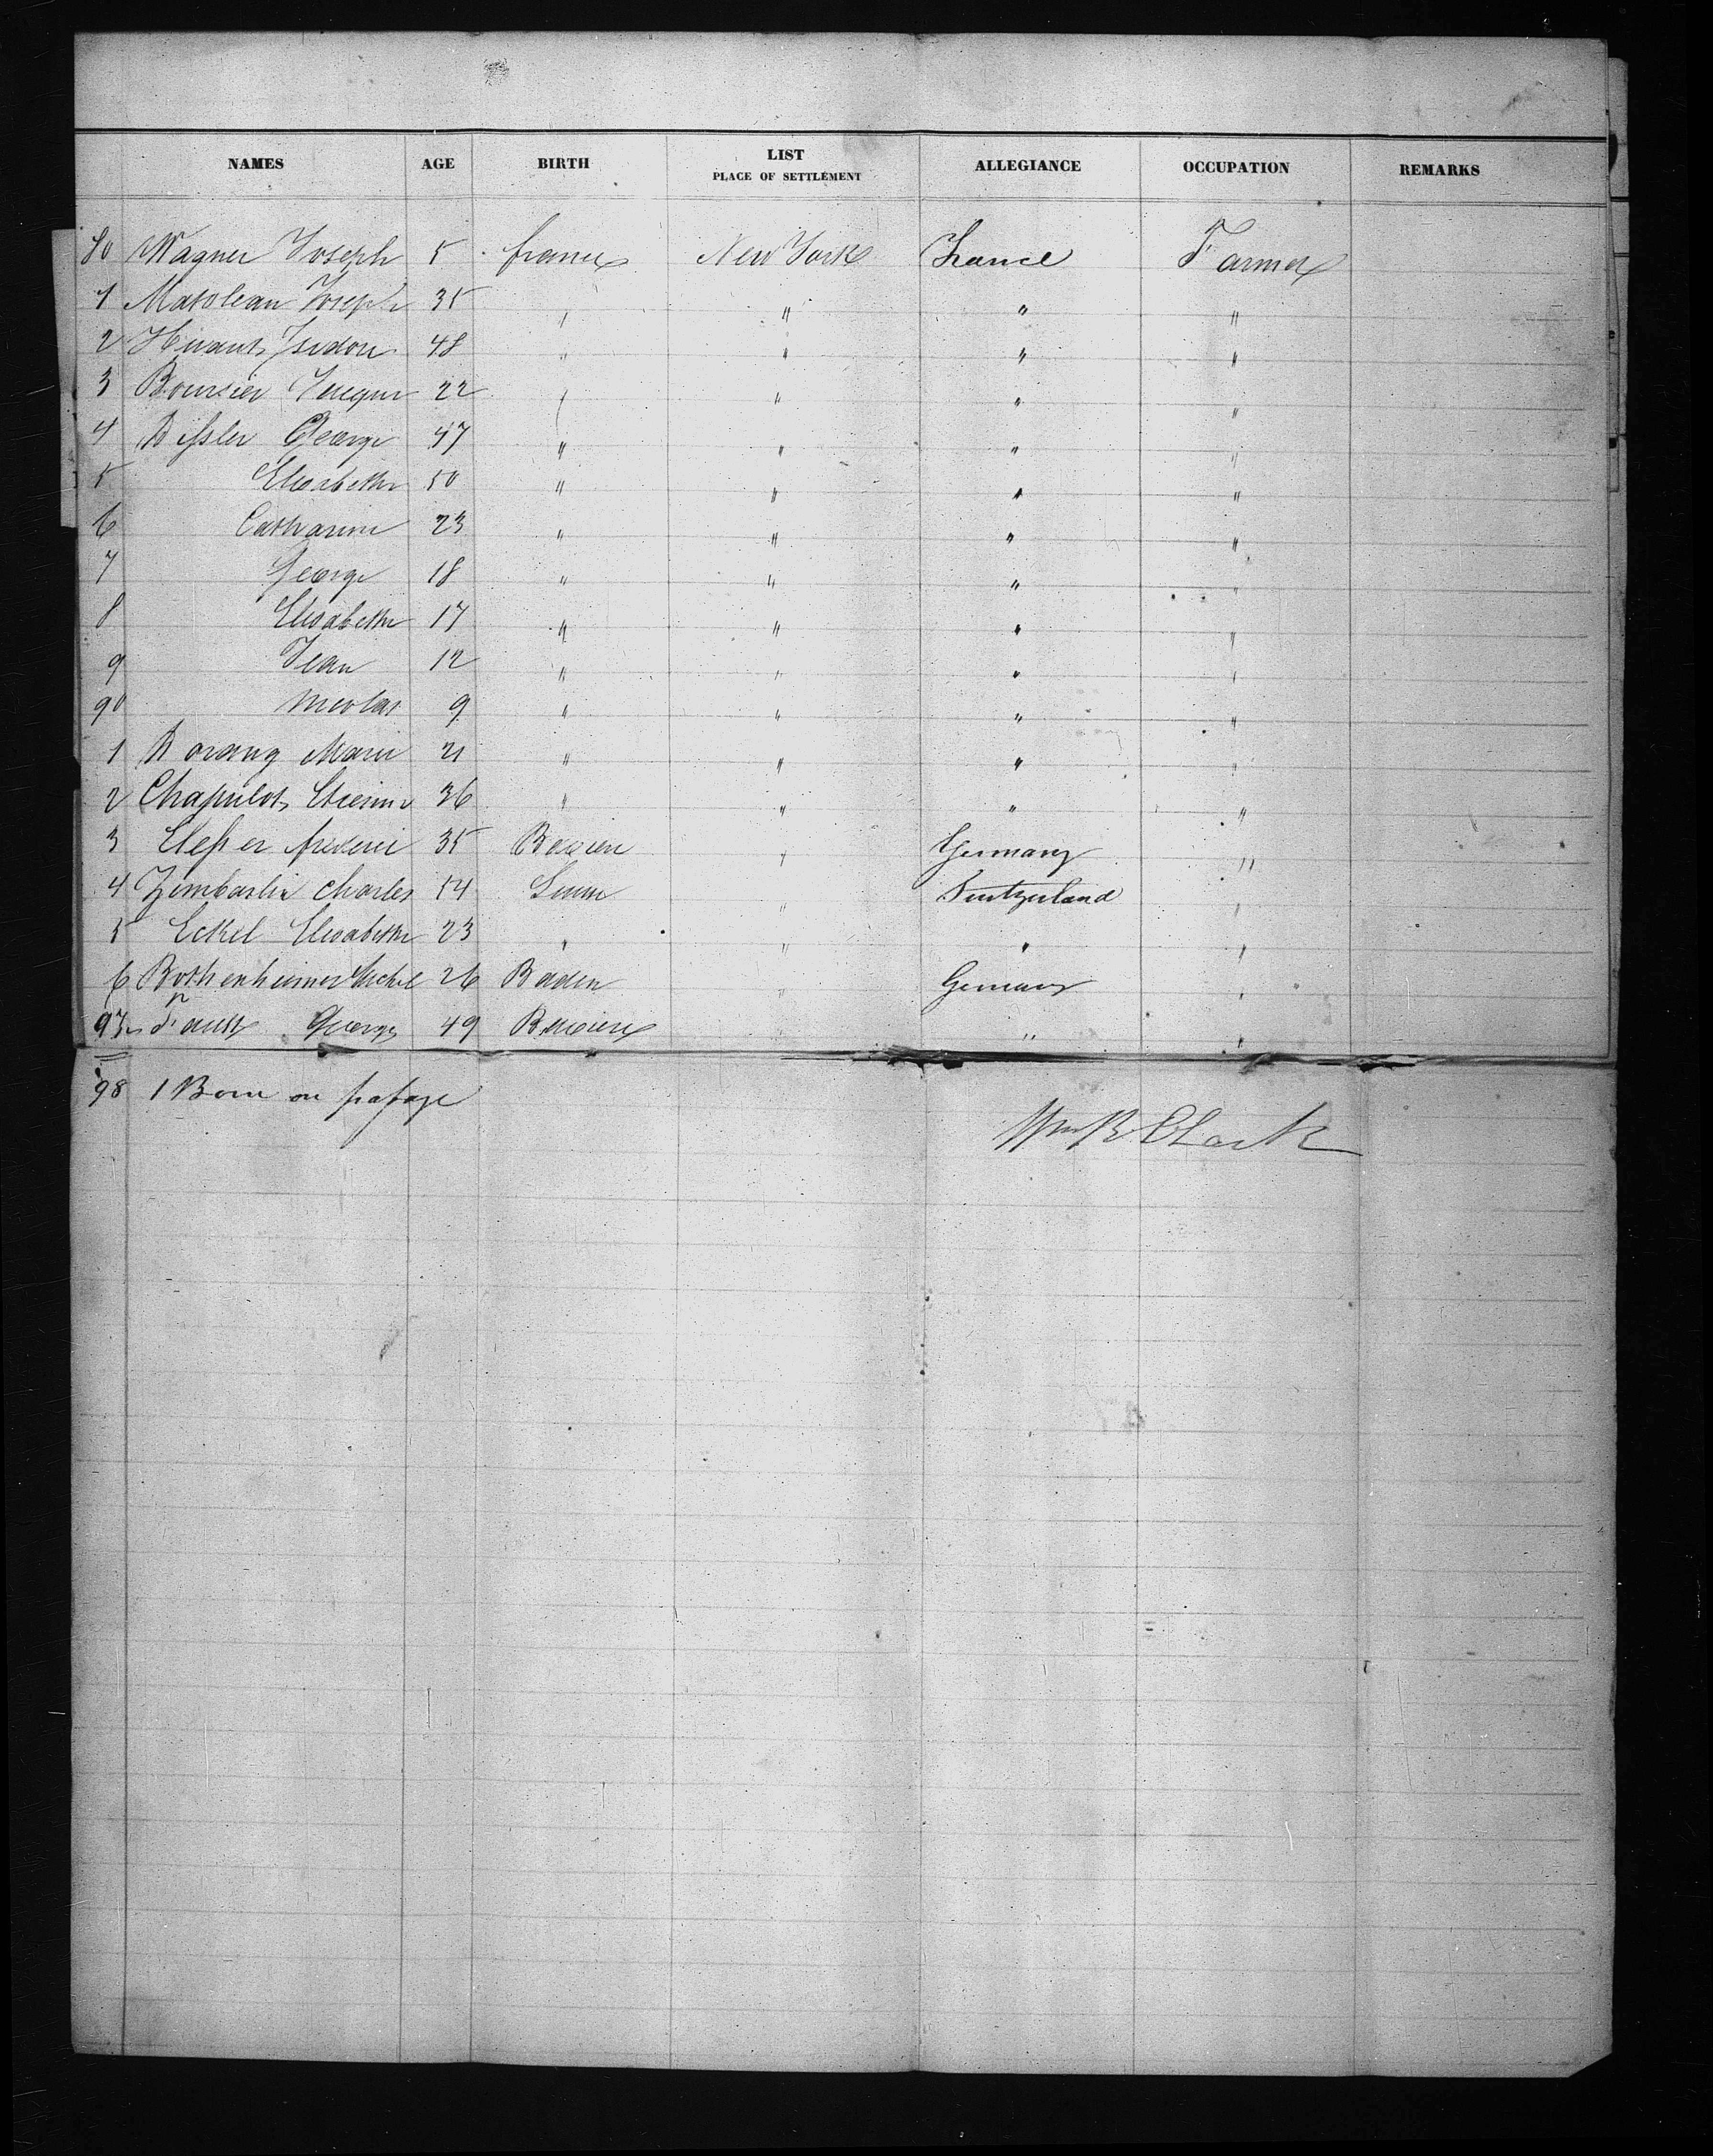 NAMES AGE BIRTH LIST PLACE OF SETTLEMENT ALLEGIANCE OCCUPATION REMARKS
80 Wagner Joseph 5 france New York France Farmer
1 Joseph 35 " " " "
2 Isidore 48 " " " "
3 Boursier 22 " " " "
4 George 47 " " " "
5 Elisabeth 50 " " " "
6 Catharine 23 " " " "
7 George 18 " " " "
8 Elisabeth 17 " " " "
9 Jean 12 " " " "
90 Nicolas 9 " " " "
1 Marie 21 " " " "
2 Etienne 36 " " " "
3 frederic 35 " Germany "
4 Charles 54 " Switzerland "
5 Eckel Elisabeth 23 " " " "
6 Bothenheimer Michel 26 Baden " Germany "
97 Faust George 49 " " "
98 1 Born on passage
Wm B Clark